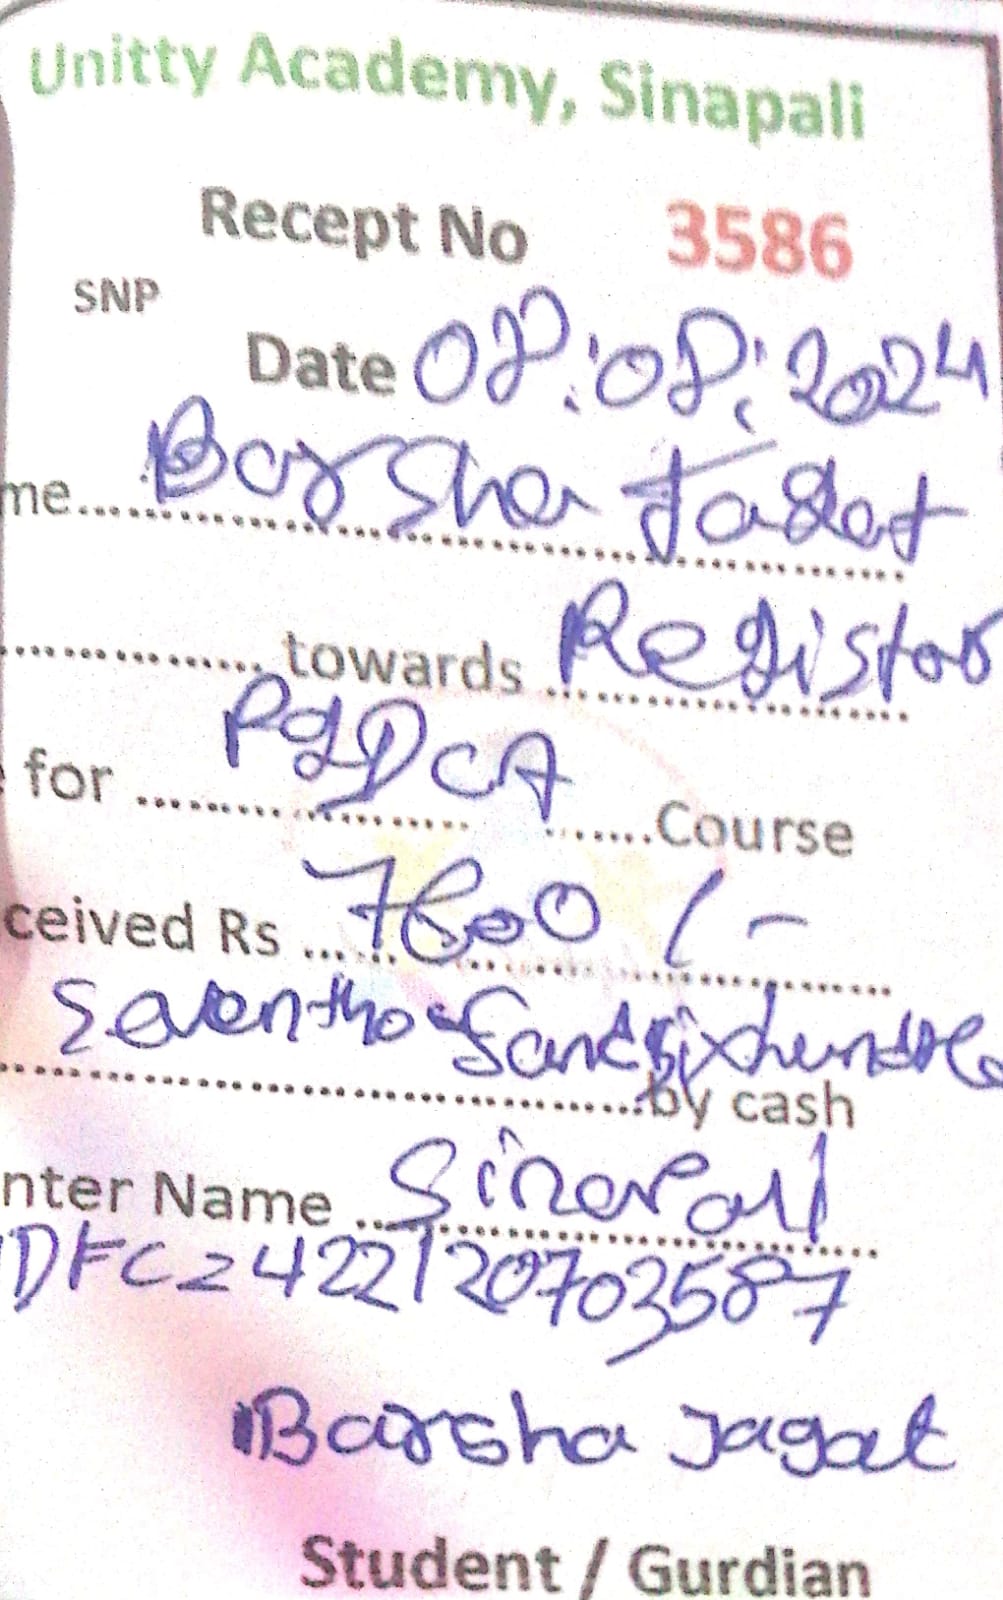 Unitty Academy, Sinapali
Recept No 3586
SNP
Date 08:08:2024
me Barsha Jagat
towards Registor
for PgDCA Course
ceived Rs 7600/-
Seventhousand sixhundre
by cash
nter Name Sinapali
DFC2422120703587
Barsha Jagat
Student / Gurdian